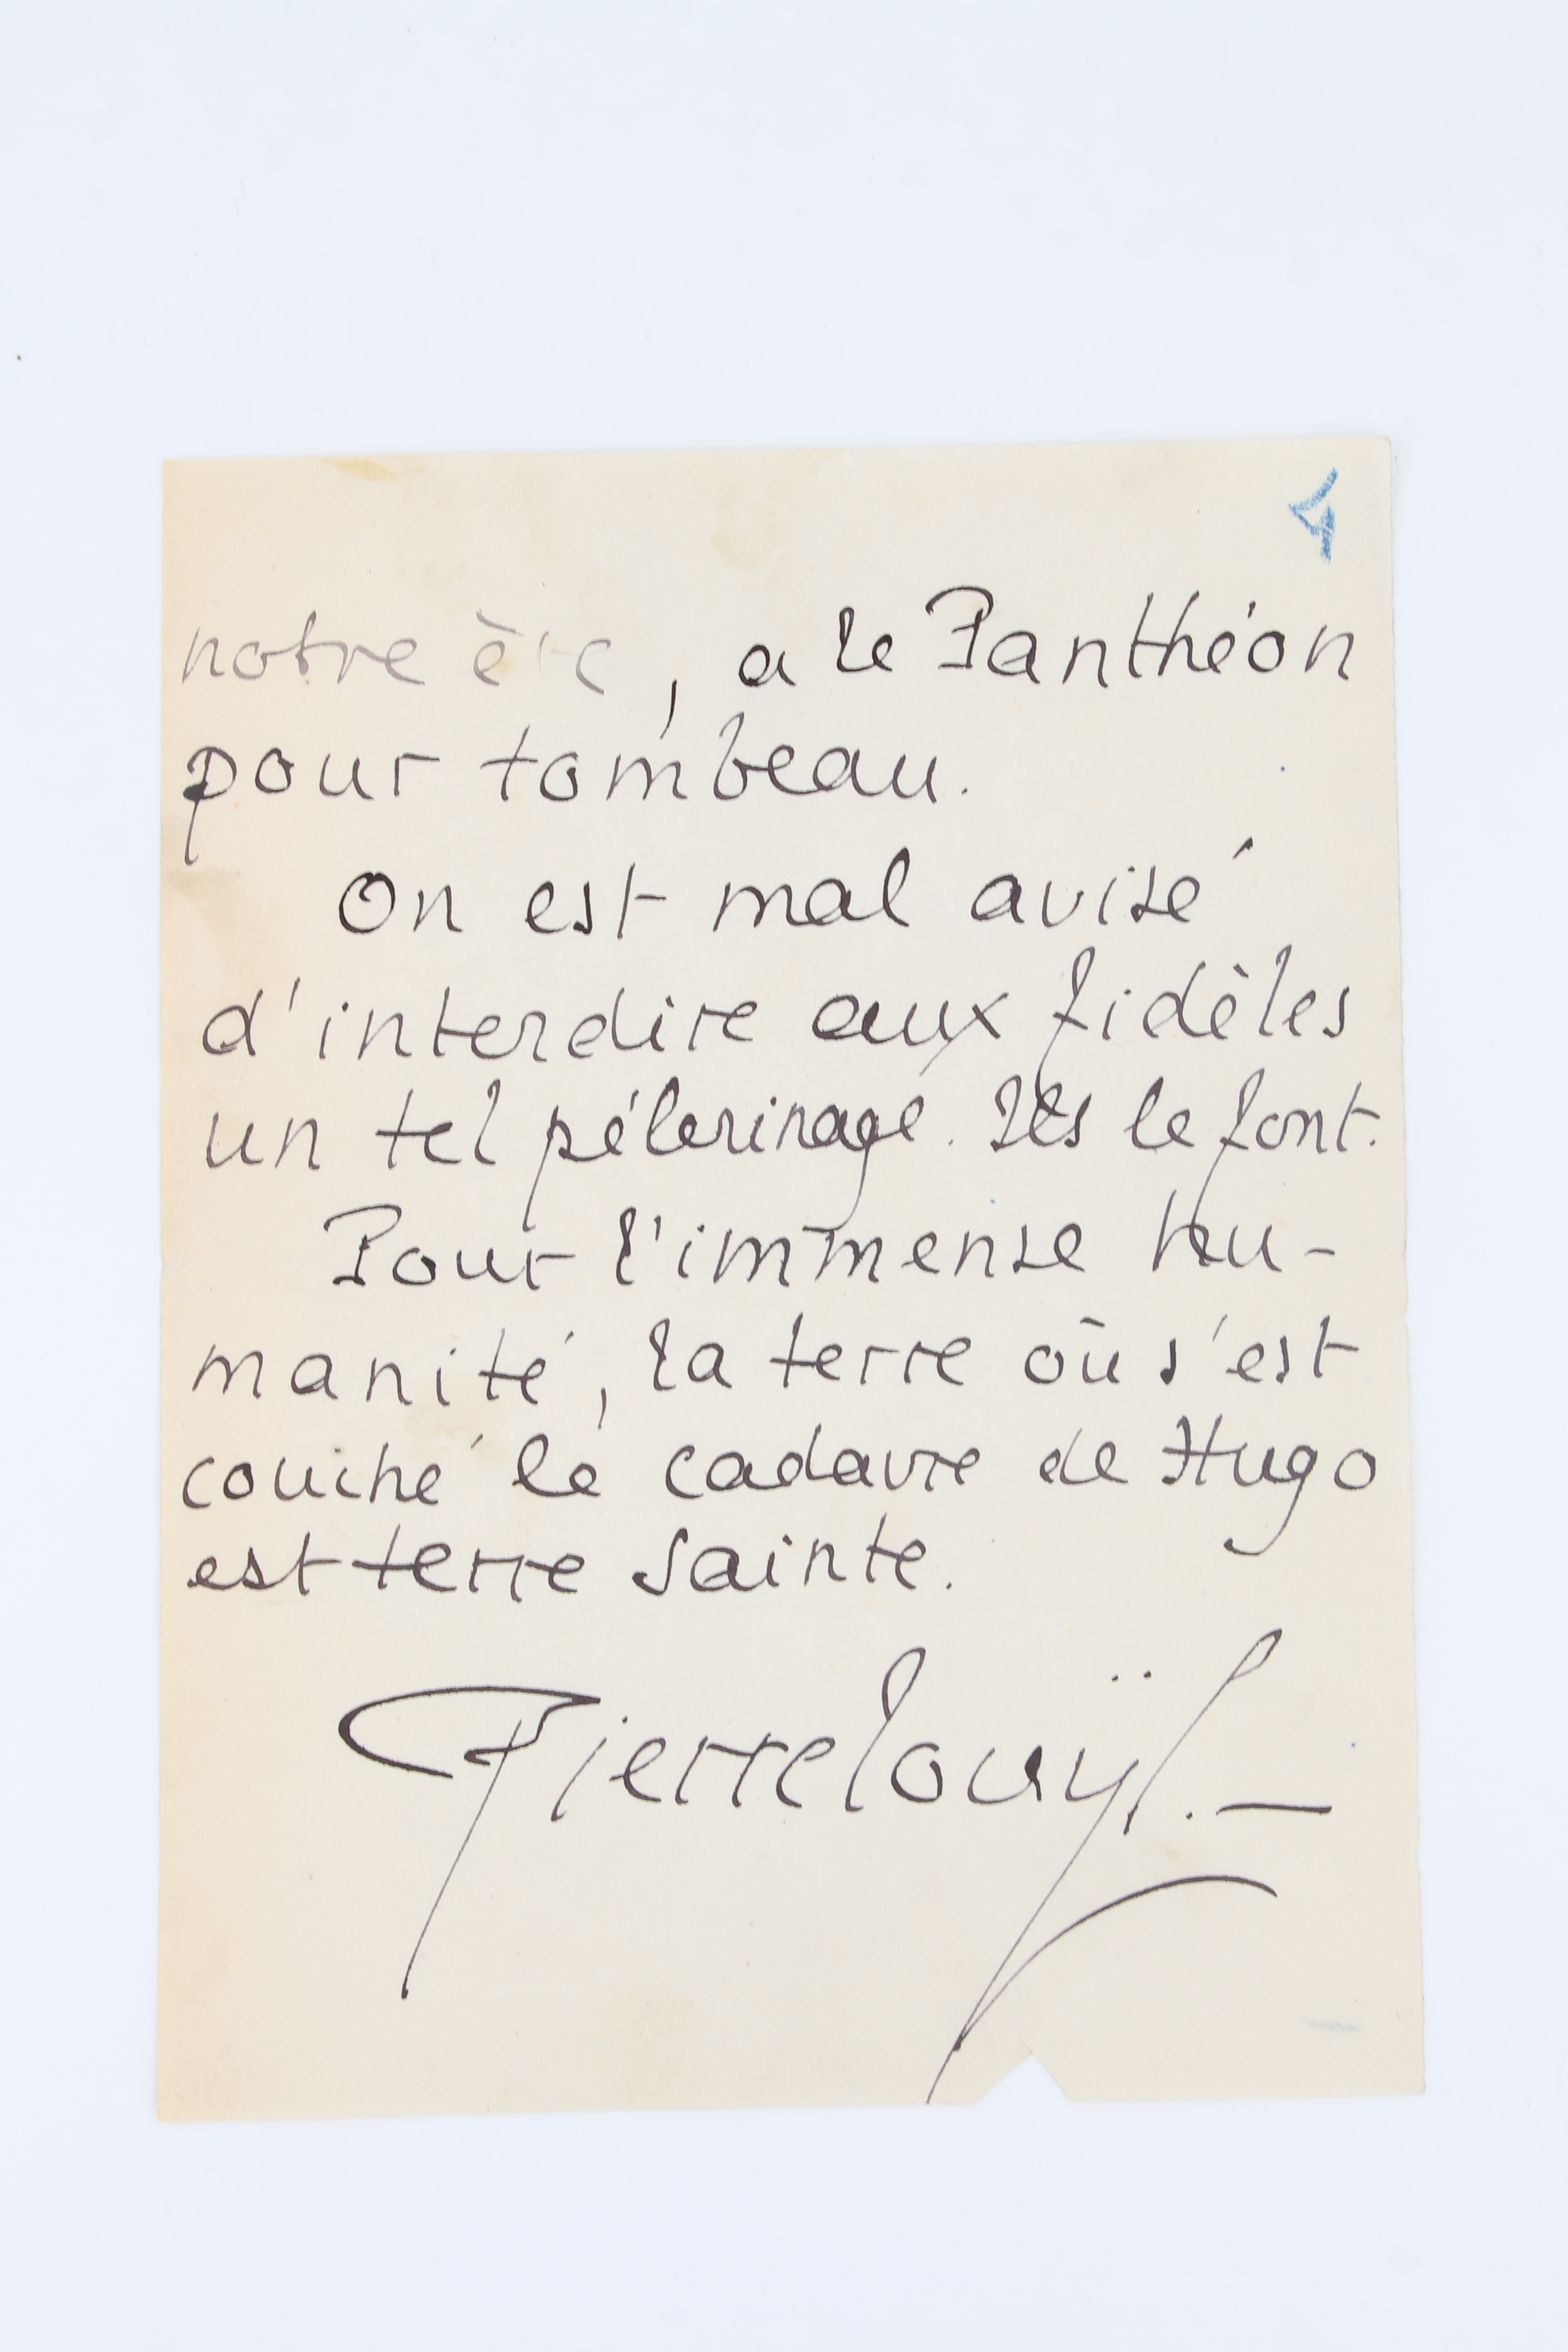 4
notre ère, a le Panthéon
pour tombeau.
On est mal avisé
d'interdire aux fidèles
un tel pélerinage. Ils le font.
Pour l'immense hu-
manité, la terre où s'est
couché le cadavre de Hugo
est terre sainte.
Pierre Louÿs. —